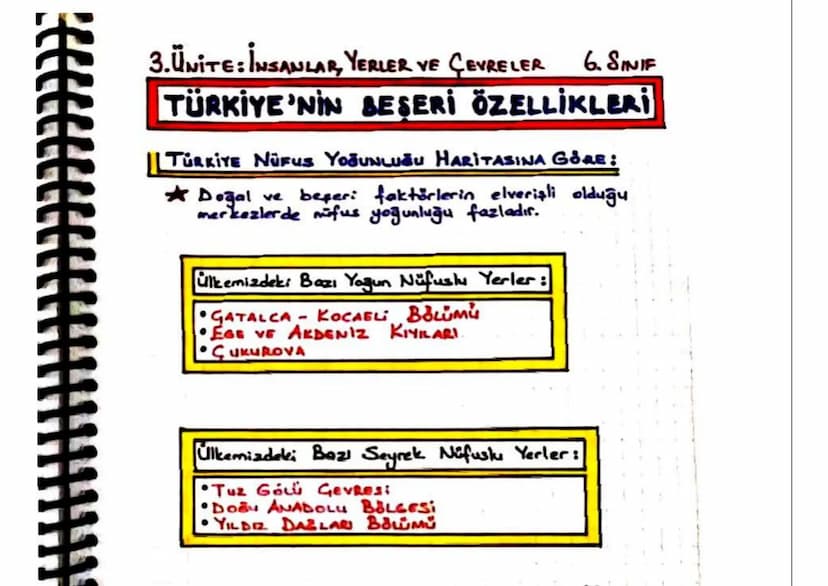 3. ÜNİTE: İNSANLAR, YERLER VE ÇEVRELER 6. SINIF
TÜRKİYE'NİN BEŞERİ ÖZELLİKLERİ
TÜRKİYE NÜFUS YOĞUNLUĞU HARİTASINA GÖRE:
★ Doğal ve beşeri faktörlerin elverişli olduğu
merkezlerde nüfus yoğunluğu fazladır.
Ülkemizdeki Bazı Yoğun Nüfuslu Yerler:
• ÇATALCA - KOCAELİ BÖLÜMÜ
• EGE VE AKDENİZ KIYILARI
• ÇUKUROVA
Ülkemizdeki Bazı Seyrek Nüfuslu Yerler:
• TUZ GÖLÜ ÇEVRESİ
• DOĞU ANADOLU BÖLGESİ
• YILDIZ DAĞLARI BÖLÜMÜ